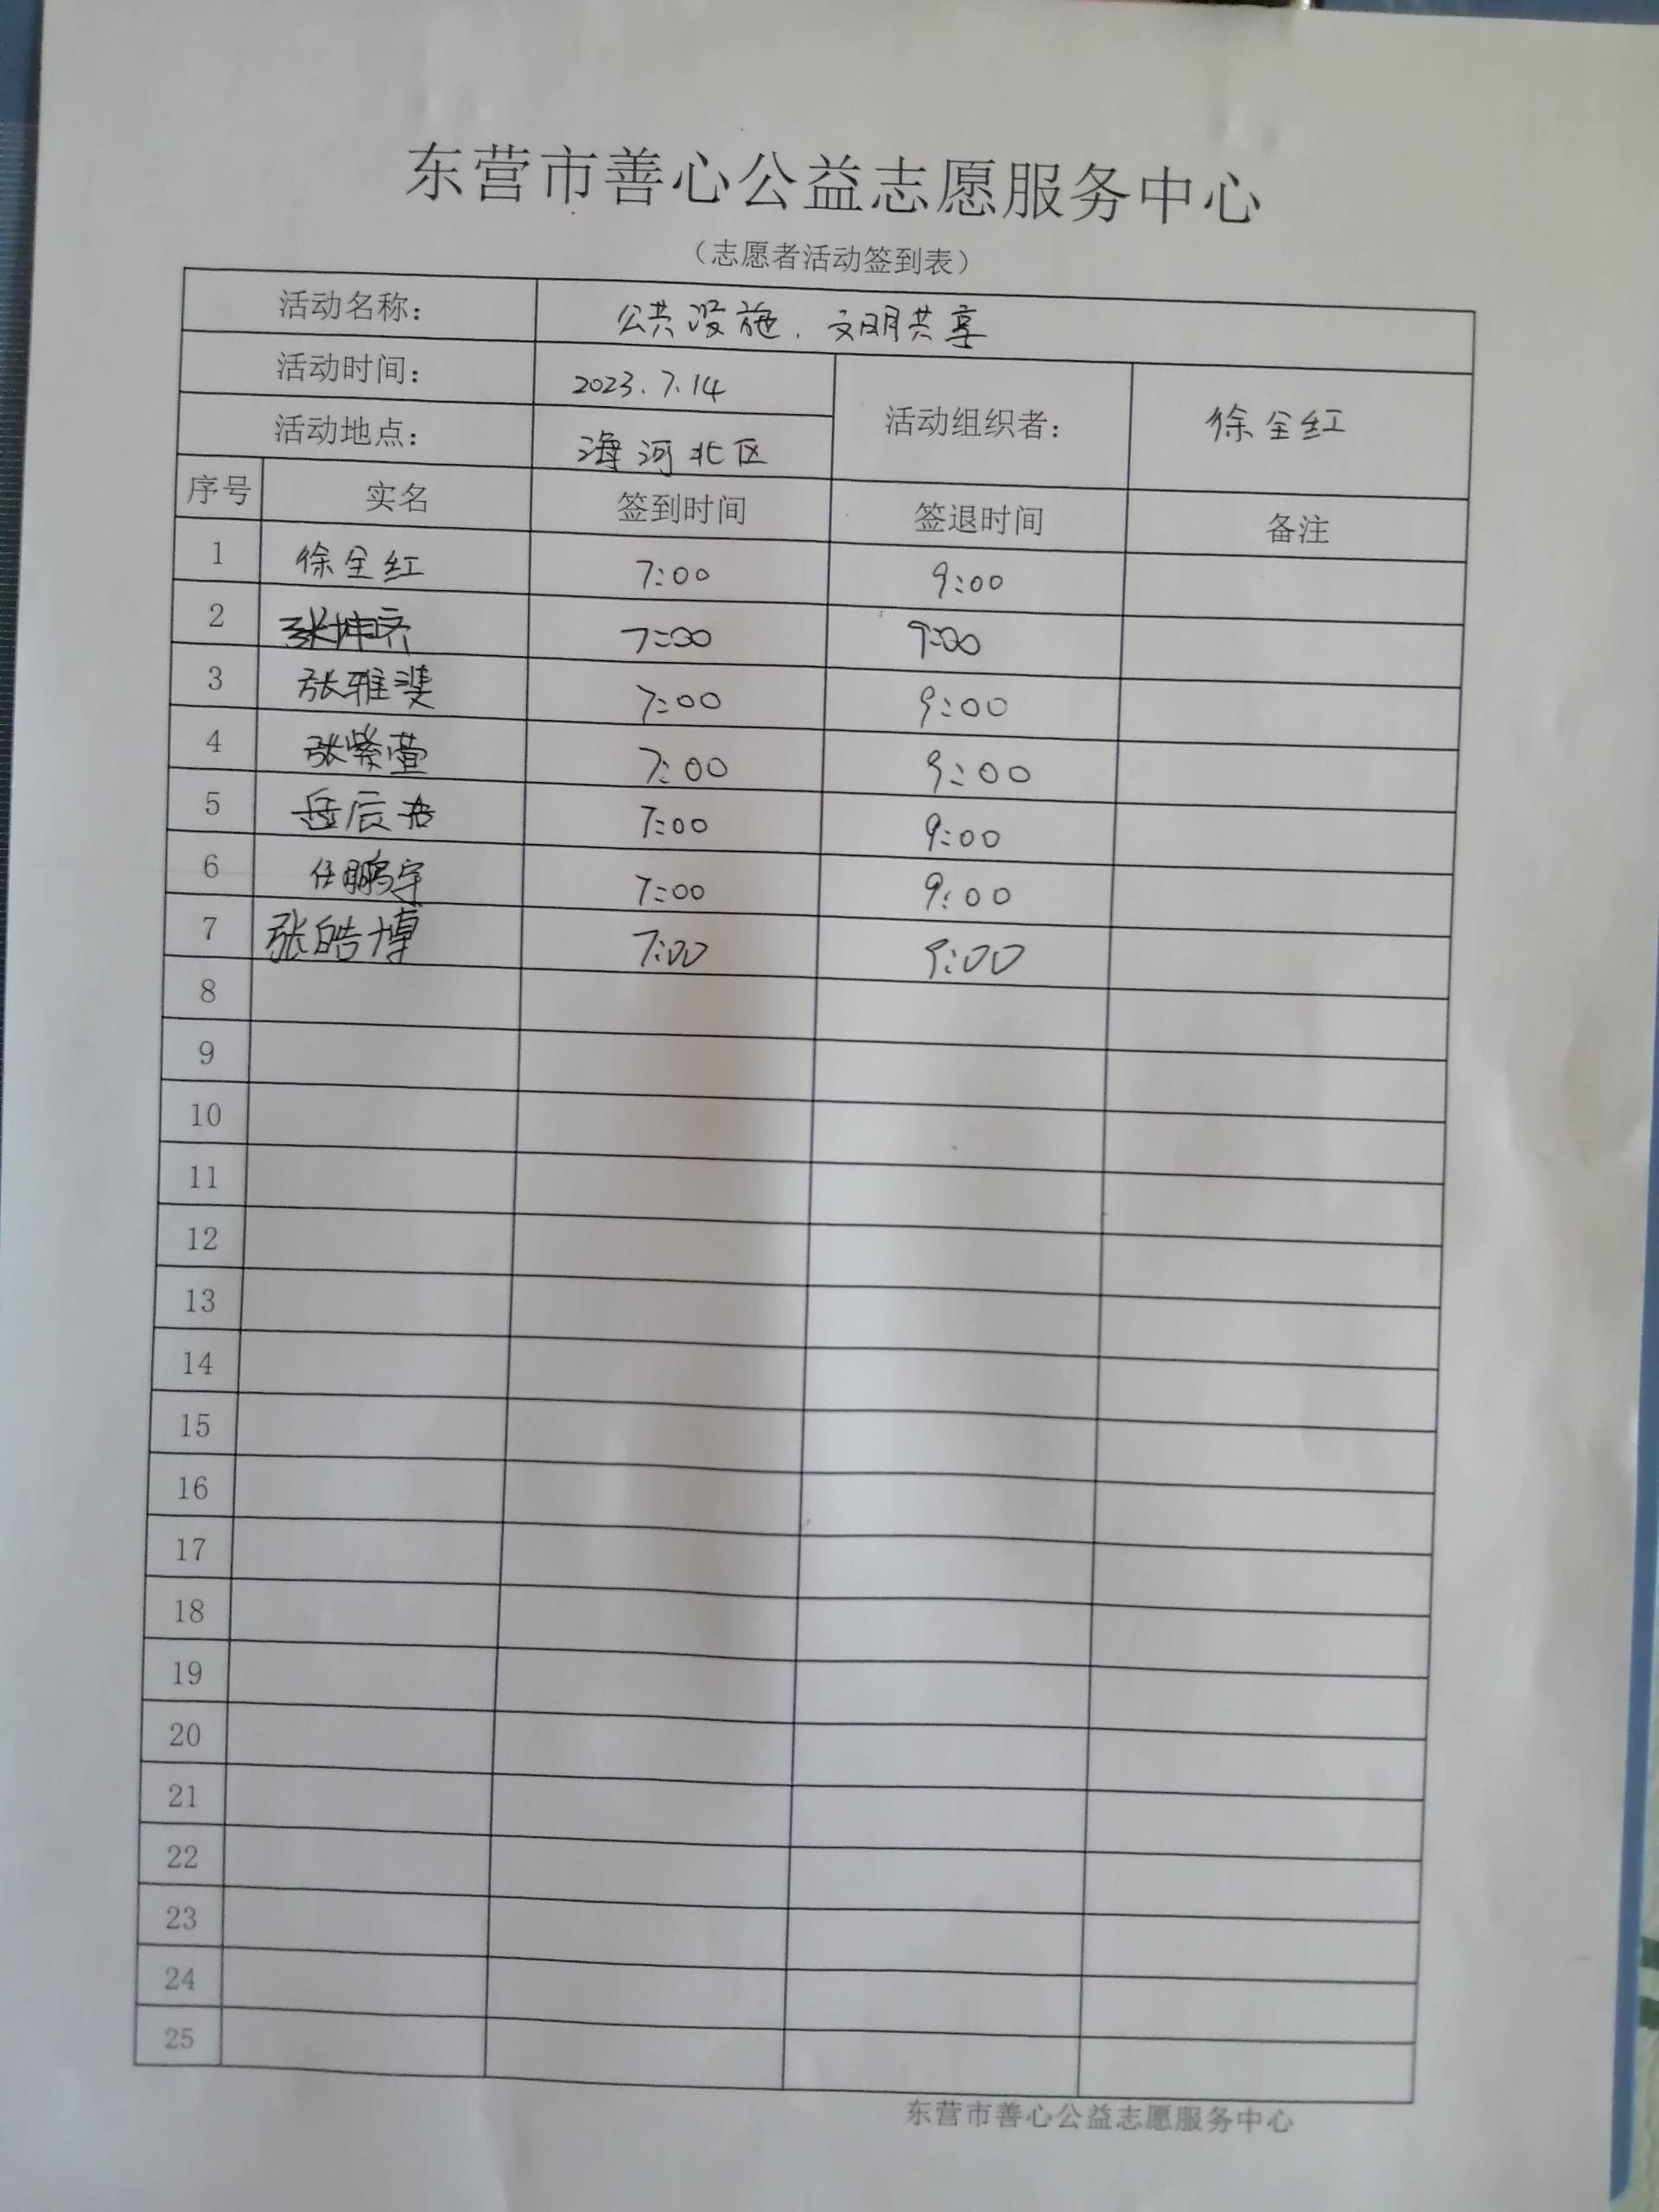 东营市善心公益志愿服务中心
（志愿者活动签到表）
活动名称： 公共设施、文明共享
活动时间： 2023.7.14
活动地点： 海河北区
活动组织者： 徐全红
序号 实名 签到时间 签退时间 备注
1 徐全红 7:00 9:00
2 张坤齐 7:00 9:00
3 张雅斐 7:00 9:00
4 张紫萱 7:00 9:00
5 岳辰 7:00 9:00
6 任鹏宇 7:00 9:00
7 张皓博 7:00 9:00
8
9
10
11
12
13
14
15
16
17
18
19
20
21
22
23
24
25
东营市善心公益志愿服务中心